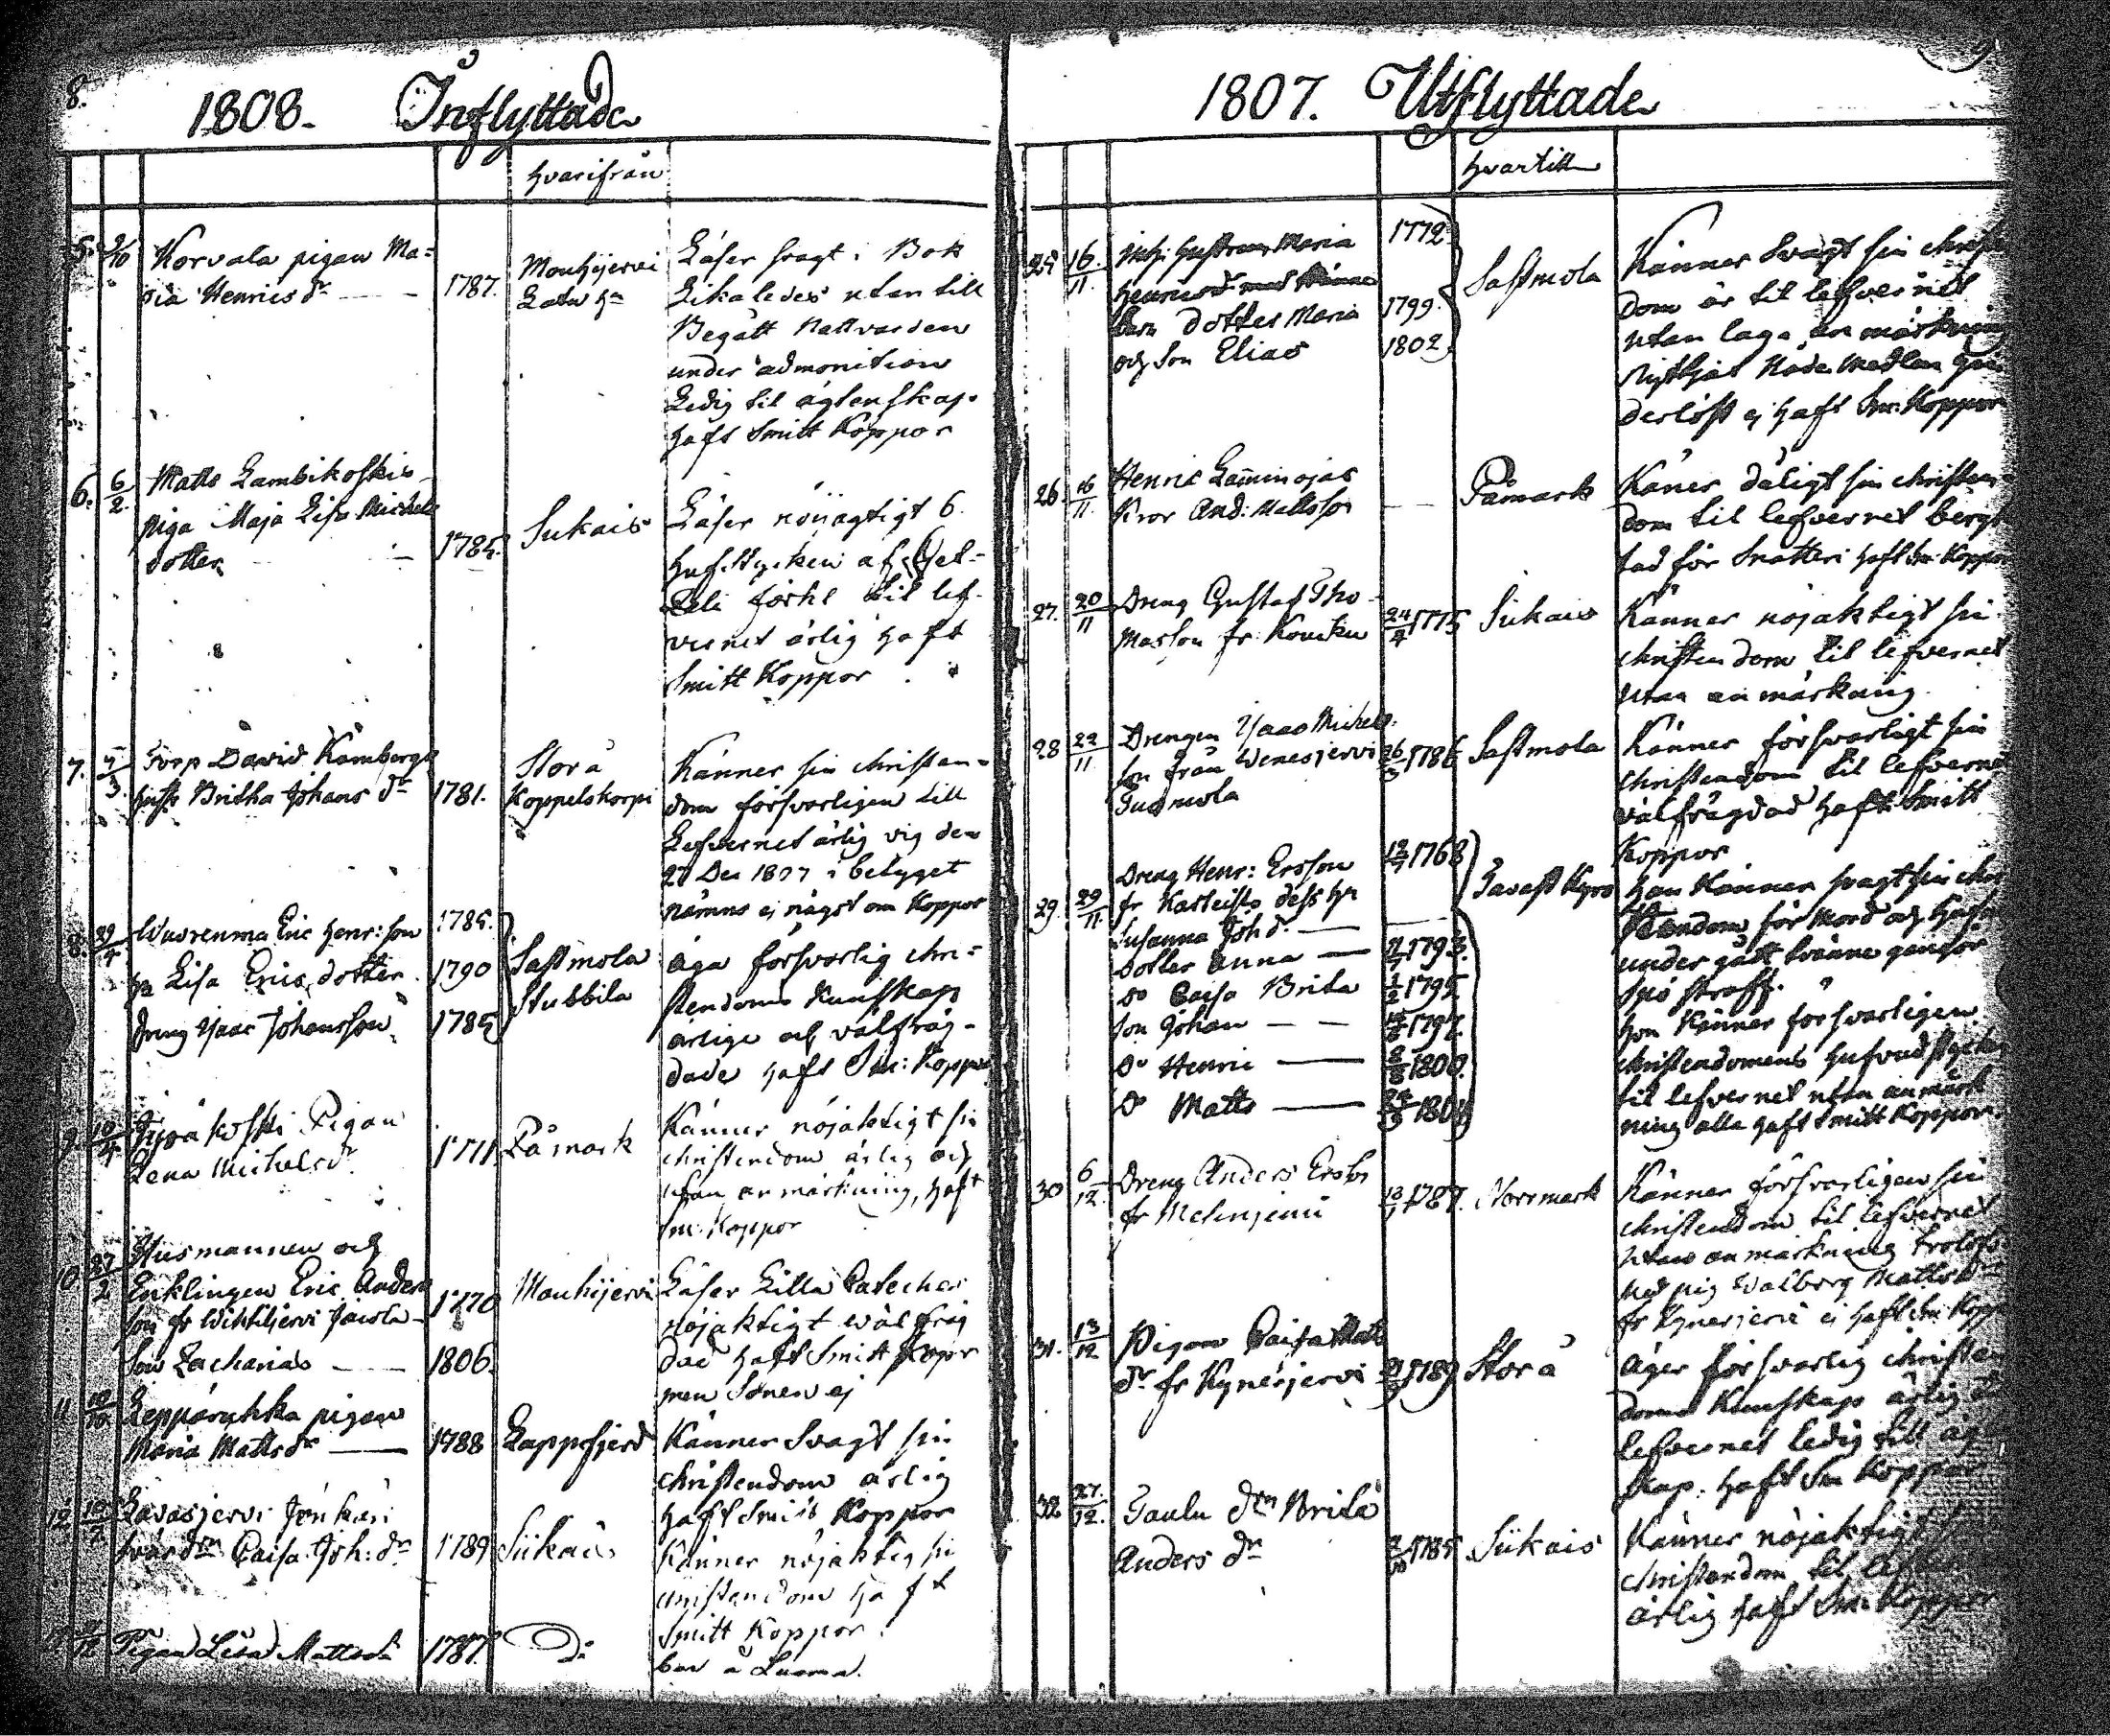 8.
1808. Inflyttade
hvarifrån
5. 9/10 Korvala pigan Ma=
ria Henrics dr 1787. Mouhijervi
Latu
Läser svagt i Bok
Likaledes utan till
Begått Nattvarden
under admonition
Ledig til ägtenskap.
haft Smitt Koppor
6. 6/2. Matts Lambikoskis
piga Maja Lisa Michels
dotter 1785. Sukais
Läser nöijagtigt 6.
hufstycken af
förkl til lef-
vernet ärlig haft
Smitt Koppor
7. 7/3. Torp David Kambergs
hust Britha Johans dr 1781. Storå
Koppelskorpi
Känner sin christen=
dom försvarligen till
Lefvernet ärlig vig den
27 Dec 1807 i betyget
nämns ej någst om Koppor
8. 29/4 Wuorenma Eric Henr: son 1785.
Lisa Erics dotter 1790
dreng Isaac Johansson 1785
Sastmola
Stubbila
äga försvarlig chri=
stendoms kunskap
ärlige och välfräg-
dade haft Sm: Koppor
9. 10/4 Pigan
Lena Michelsdr. 1771. Påmark
Känner nöjaktigt sin
christendom ärlig och
utan anmärkning, haft
Sm: Koppor
10 27/2 Husmannen och
Enklingen Eric Anders
son fr 1770 Mouhijervi
Son Zacharias 1806.
Läser Lilla Cateches
nöjaktigt wälfräg
dad haft Smitt Kopor
men Sonen ej
11 10/10 Leppäruhka pigan
Maria Matts dr 1788 Lappfjerd
Känner Svagt sin
christendom ärlig
haft Smitt Koppor
12 Lavasjervi
Caisa Joh: dr 1789 Siikais
Känner nöjaktig sin
christendom haft
Smitt Koppor.
Pigan Lisa Mattsdr 1787. Do
1807. Utflyttade
hvartill
25 16/11. Hustrun Maria 1772.
Henricsdr med tvänne
barn dotter Maria 1799.
och Son Elias 1802.
Sastmola
Känner Svagt sin christen
dom är til lefvernet
utan laga anmärkning
nyttjat Nådemedlen
haft Sm: Koppor
26. 16/11. Henric Lamminojas
Anders Mattsson Påmark
Känner dåligt sin christen-
dom til lefvernet
för Snatteri haft Sm: Koppor
27. 20/11 Dreng Gustaf Tho-
masson fr. 24/4 1775 Siikais
Känner nöjaktigt sin
christendom til lefvernet
utan anmärkning.
28 22/11 Drengen Isaac Michels
son från Wenesjervi 26/3 1786 Sastmola
Tuomola
Känner försvarligt sin
christendom til lefvernet
välfrägdad haft Smitt
Koppor
29. 29/11 Dreng Henr: Ersson 1768
dess hu
Susanna Joh dr.
dotter Anna 1793.
Do Caisa Brita 1795
Son Johan 1797.
Do Henric 1800.
Do Matts 1804
Tavast Kyro
Han Känner svagt sin chri
stendom för Mord och
undergått tvänne gånger
Spö straff.
Hon Känner försvarligen
christendomens hufvudstycken
til lefvernet utan anmärk
ning alla haft Smitt Koppor
30 6/12. Dreng Anders Ersson
fr 1787. Norrmark
Känner försvarligen sin
christendom til lefvernet
utan anmärkning trolofvad
med pig Walborg Mattsdr
fr Kynesjervi ej haft Sm: Kopp
31. 13/12 Pigan Caisa Matts
dr fr Kynesjervi 1789 Storå
äger försvarlig christen
doms Kunskap ärlig
lefvernet ledig till ägten
skap. haft Sm Koppor
32 27/12. Brita
Anders dr 1785 Siikais
Känner nöjaktigt sin
christendom til lefver
ärlig haft Sm: Koppor